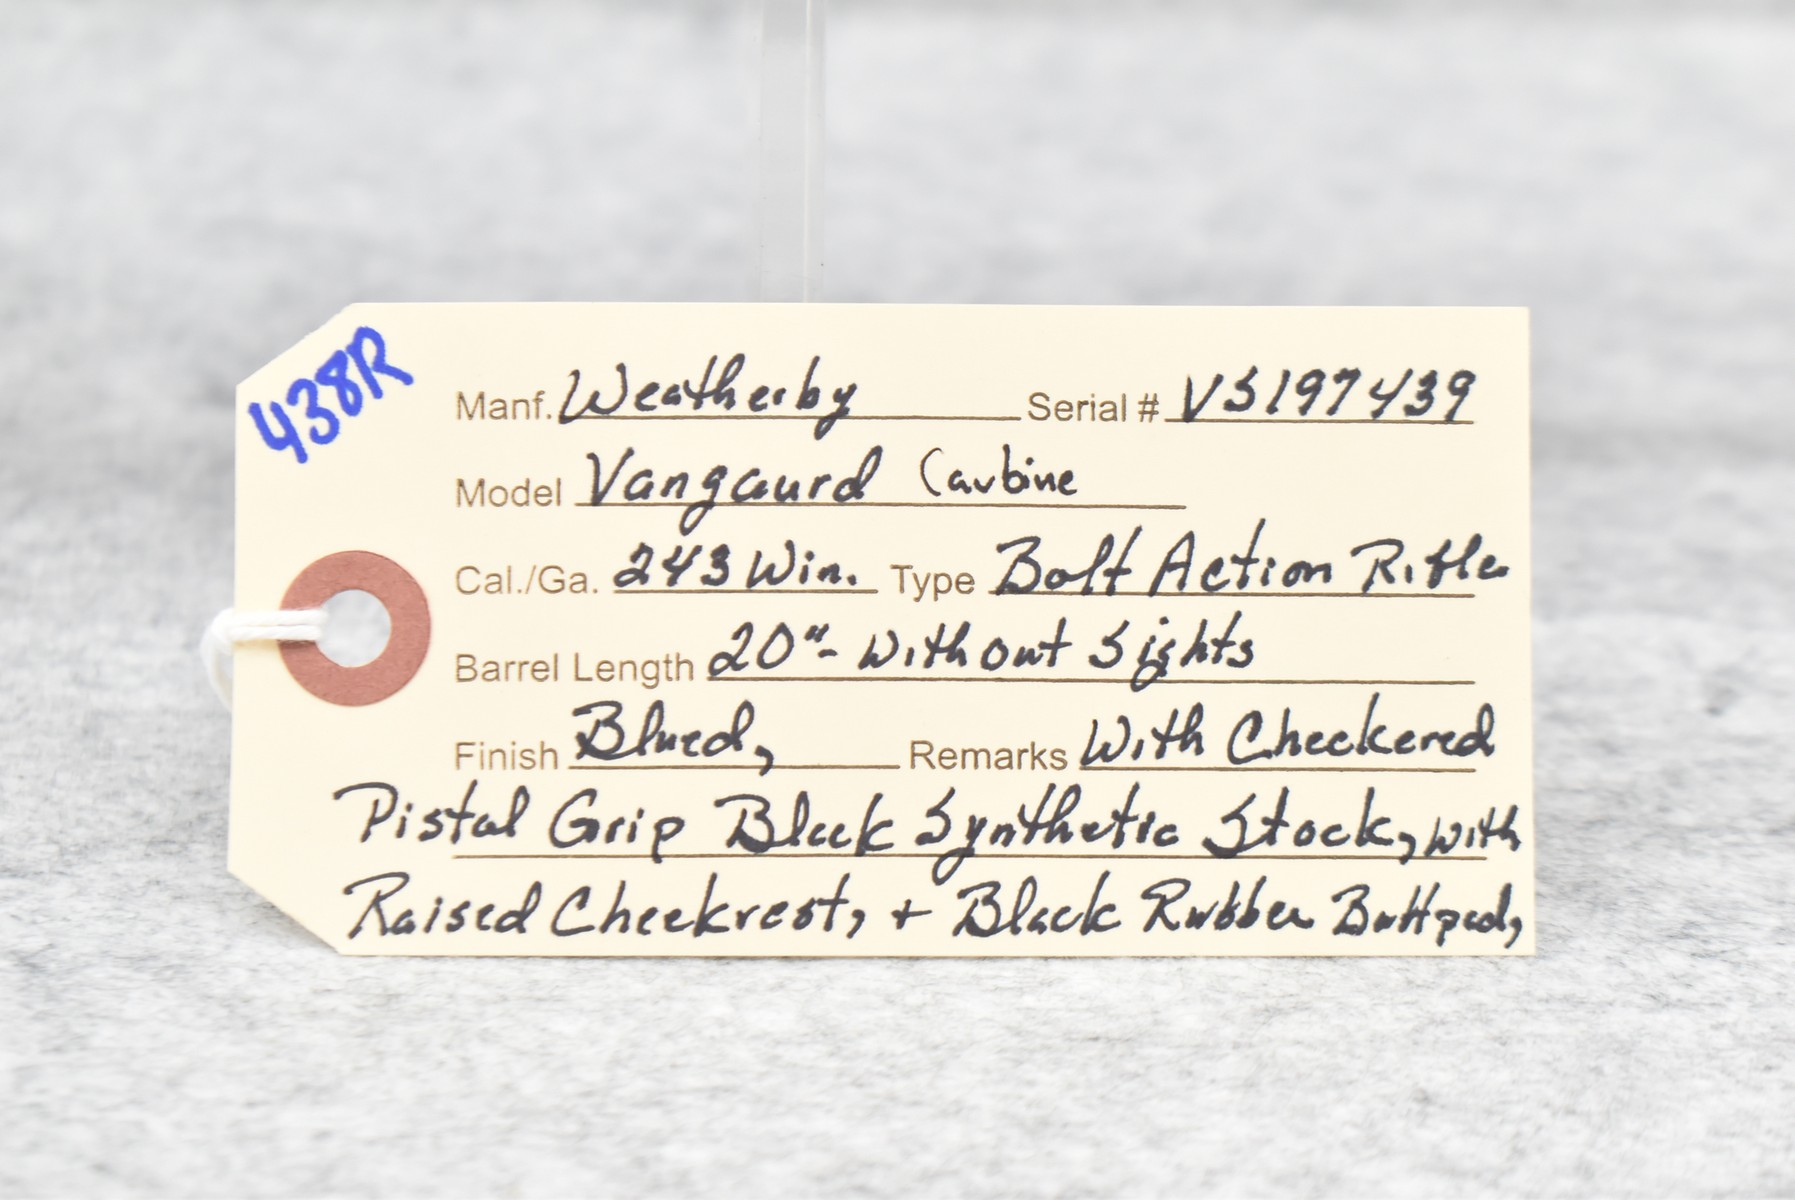 438R
Manf. Weatherby Serial # VS197439
Model Vangaurd Carbine
Cal./Ga. 243 Win. Type Bolt Action Rifle
Barrel Length 20"- Without Sights
Finish Blued, Remarks With Checkered
Pistol Grip Black Synthetic Stock, with
Raised Cheekrest, + Black Rubber Buttpad,